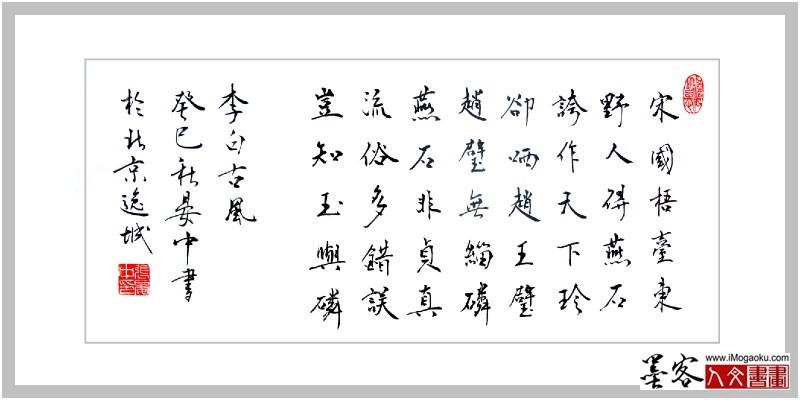 宋國梧臺東
野人得燕石
誇作天下珍
卻哂趙王璧
趙璧無緇磷
燕石非貞真
流俗多錯誤
豈知玉與磷
李白古風
癸巳秋晏中書
於北京逸城
墨客
www.iMogaoku.com
人文書畫